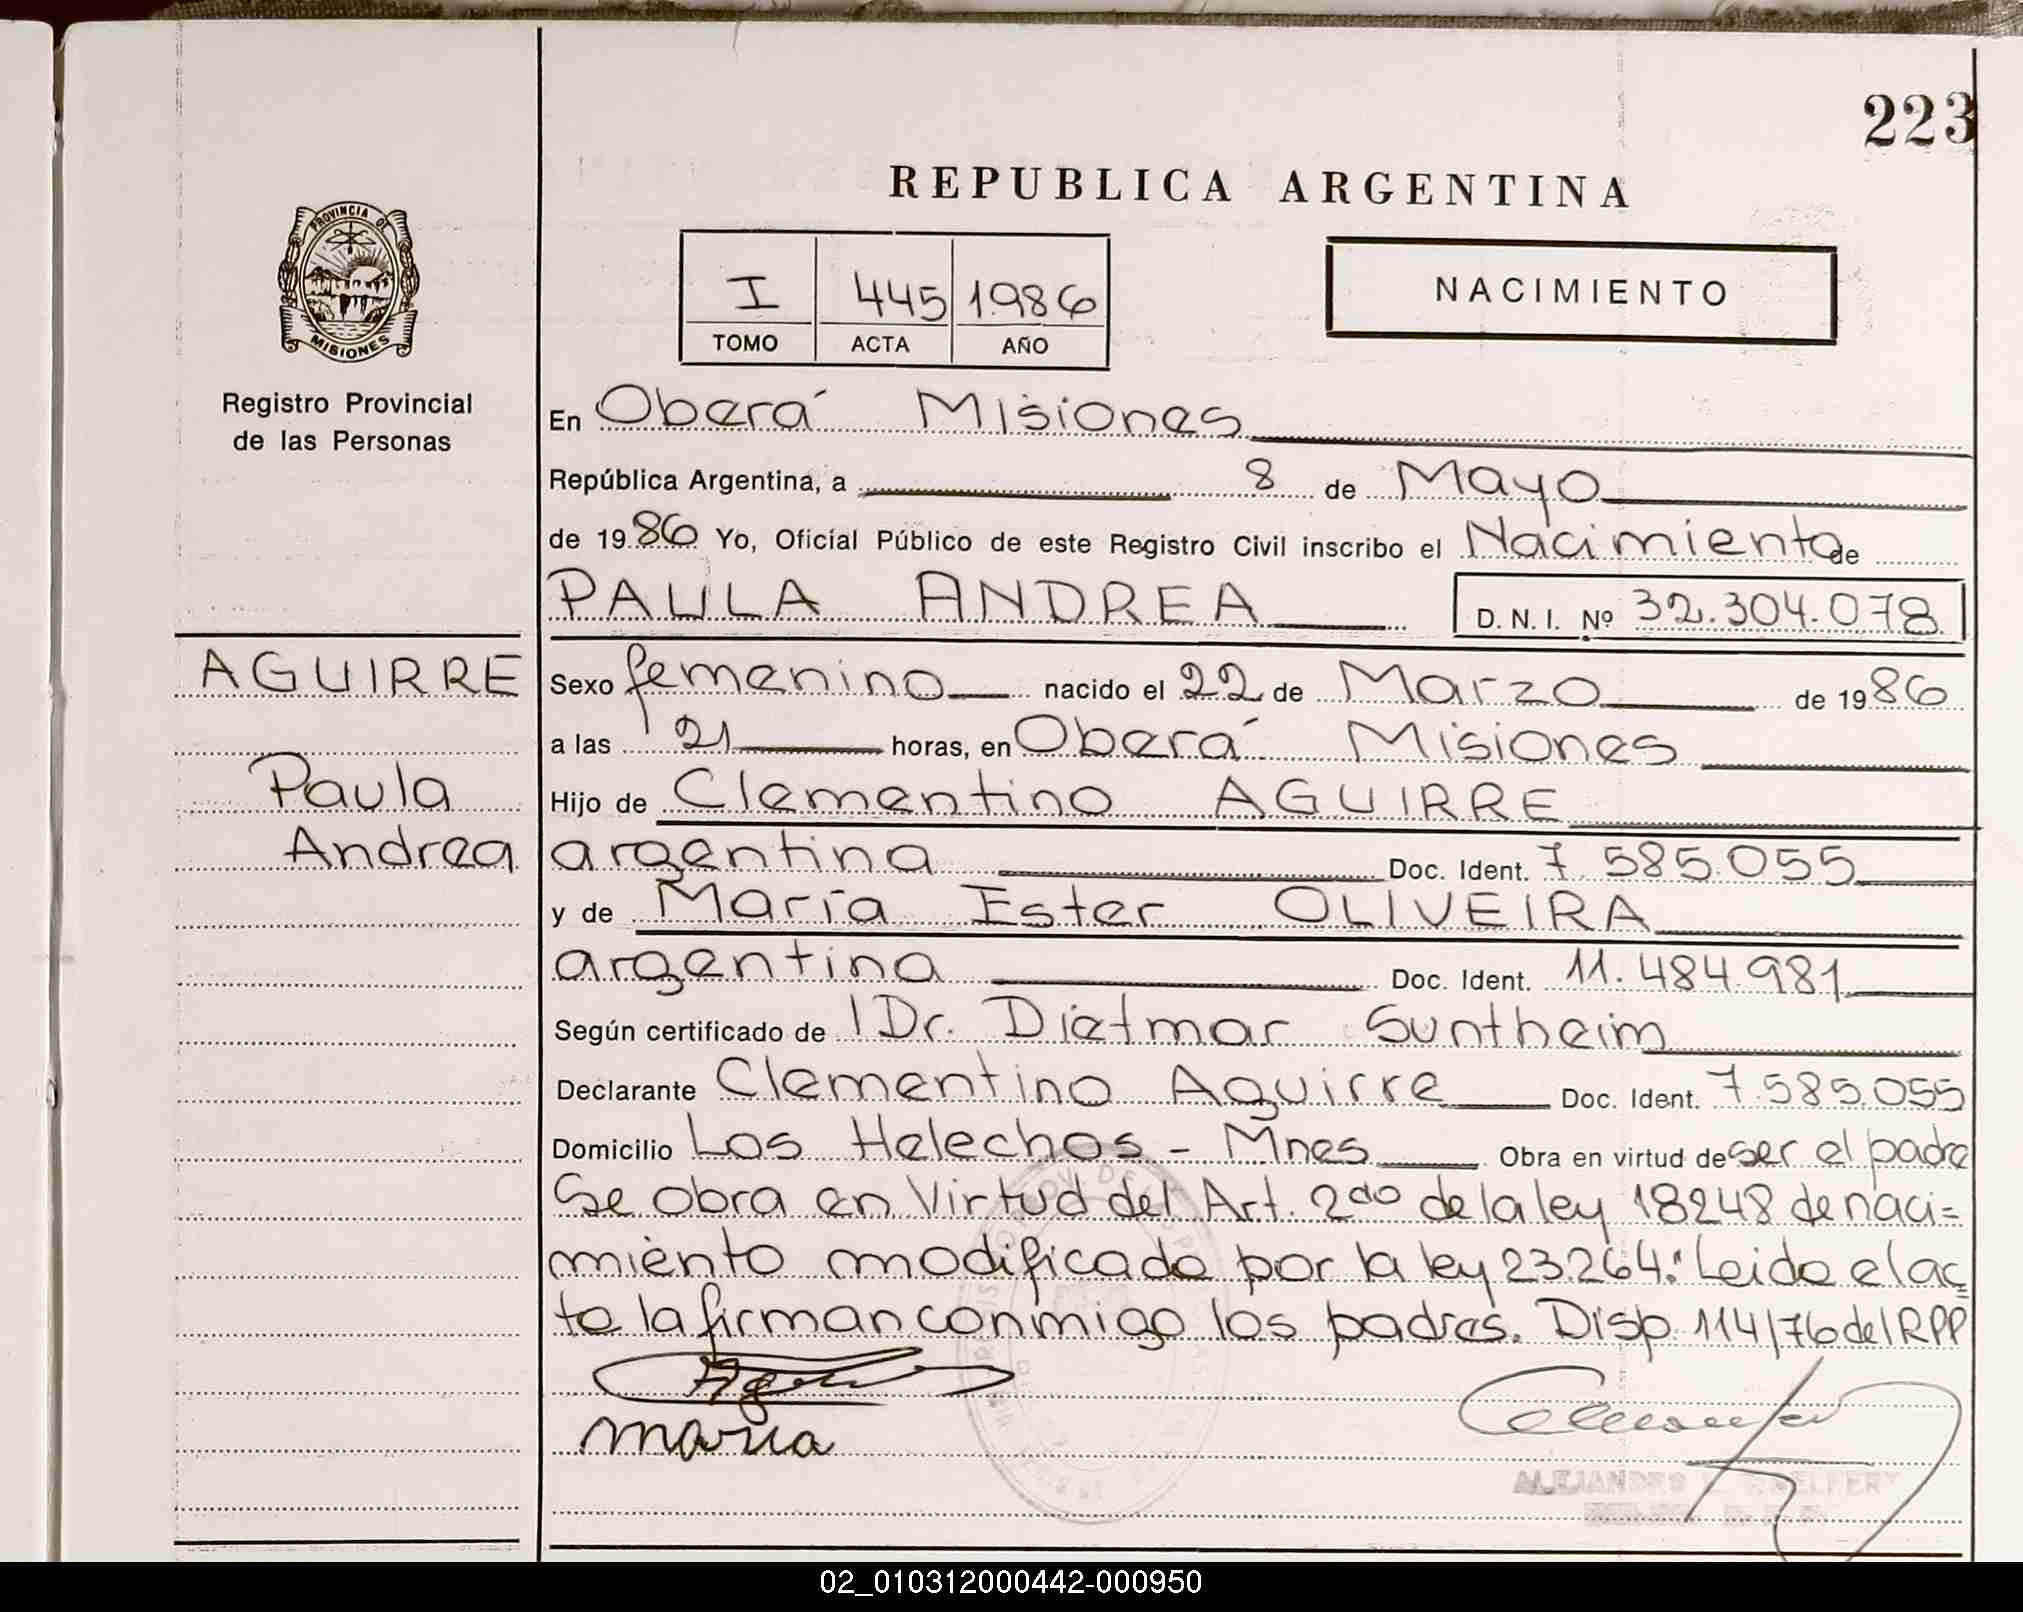 223
REPUBLICA ARGENTINA
PROVINCIA DE
MISIONES
Registro Provincial
de las Personas
I 445 1986
TOMO ACTA AÑO
NACIMIENTO
En Oberá Misiones
República Argentina, a 8 de Mayo
de 1986 Yo, Oficial Público de este Registro Civil inscribo el Nacimiento de
PAULA ANDREA D. N. I. Nº 32.304.078
AGUIRRE
Paula
Andrea
Sexo femenino nacido el 22 de Marzo de 1986
a las 21 horas, en Oberá Misiones
Hijo de Clementino AGUIRRE
argentina Doc. Ident. 7.585.055
y de María Ester OLIVEIRA
argentina Doc. Ident. 11.484.981
Según certificado de Dr. Dietmar Suntheim
Declarante Clementino Aguirre Doc. Ident. 7.585.055
Domicilio Los Helechos - Mnes Obra en virtud de ser el padre
Se obra en Virtud del Art. 2do de la ley 18248 de naci=
miento modificado por la ley 23.264: Leida el ac=
ta la firman conmigo los padres. Disp 114/76 del RPP
maria
ALEJANDRO
02_010312000442-000950